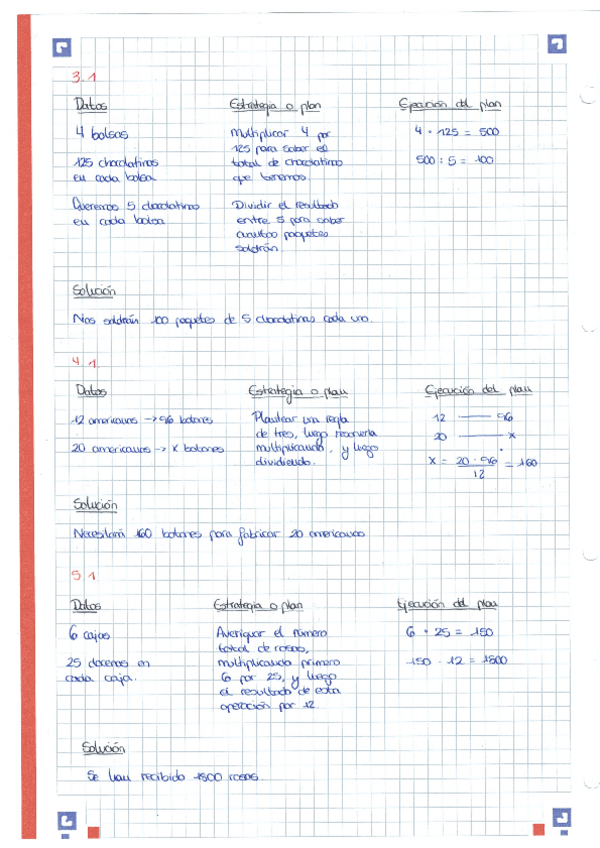 3.1
Datos
Estrategia o plan
Ejecución del plan
4 bolsas
Multiplicar 4 por
125 para saber el
total de chocolatinas
que tenemos.
4 · 125 = 500
125 chocolatinas
en cada bolsa
500 : 5 = 100
Queremos 5 chocolatinas
en cada bolsa
Dividir el resultado
entre 5 para saber
cuantos paquetes
saldrán.
Solución
Nos saldrán 100 paquetes de 5 chocolatinas cada uno.
4.1
Datos
Estrategia o plan
Ejecución del plan
12 americanas -> 96 botones
20 americanas -> x botones
Plantear una regla
de tres, luego resolverla
multiplicando, y luego
dividiendo.
12 —— 96
20 —— x
x = 20 · 96 / 12 = 160
Solución
Necesitará 160 botones para fabricar 20 americanas
5.1
Datos
Estrategia o plan
Ejecución del plan
6 cajas
25 docenas en
cada caja.
Averiguar el número
total de rosas,
multiplicando primero
6 por 25, y luego
el resultado de esta
operación por 12.
6 · 25 = 150
150 · 12 = 1800
Solución
Se han recibido 1800 rosas.